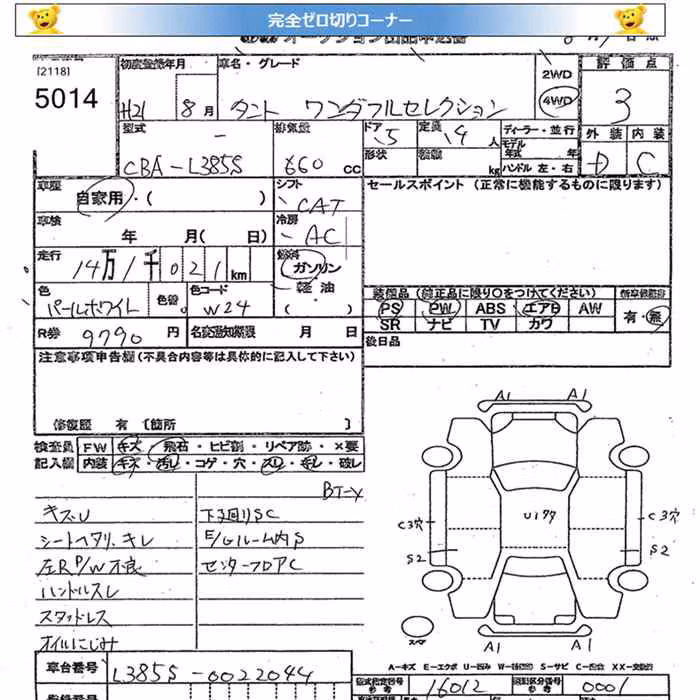 完全ゼロ切りコーナー
[2118]
5014
初度登録年月
H21 8月
車名・グレード
タント ワンダフルセレクション
2WD
4WD
評価点
3
型式
CBA-L385S
排気量
660 CC
ドア 5
形状
定員 4人
kg
ディーラー・並行
モデル年式 年
ハンドル 左・右
外装 内装
D C
車歴
自家用・( )
シフト
CAT
セールスポイント (正常に機能するものに限ります)
車検
年 月( 日)
冷房
AC
走行
14万1千021km
燃料
ガソリン
軽油
( )
色
パールホワイト
色替
色コード
W24
装備品 (純正品に限り○をつけてください)
PS PW ABS エアB AW
SR ナビ TV カワ
有・無
R券 9790円
名変通知期限 月 日
後日品
注意事項申告欄 (不具合内容等は具体的に記入して下さい)
修復歴 有 [箇所 ]
検査員
記入欄
FW キズ・飛石・ヒビ割・リペア跡・×要
内装 キズ・汚レ・コゲ・穴・スレ・キレ・破レ
キズU
シートヘタリ,キレ
左RP/W不良
ハンドルスレ
スタッドレス
オイルにじみ
下回りSC
E/Gルーム内S
センターフロアC
A1 A1
U177
C3穴 C3穴
S2 S2
スペア
A1 A1
A-キズ E-エクボ U-凹み S-サビ
車台番号
L385S-0022044
型式指定番号
参考
16012
類別区分番号
参考
0001